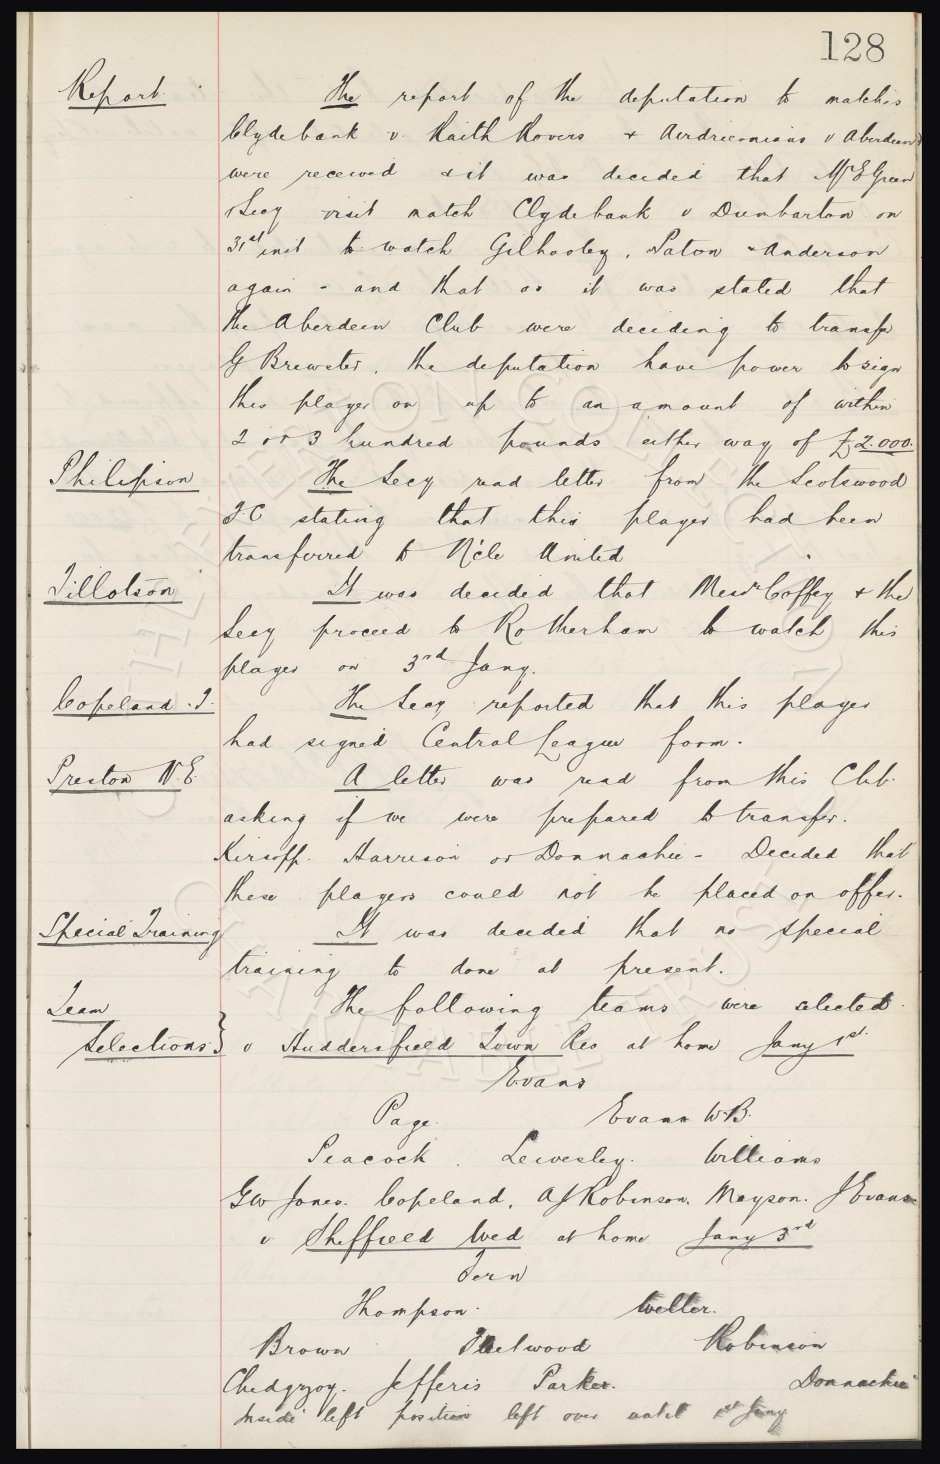 128
Report. The report of the deputation to matches
Clydebank v. Raith Rovers + Airdrieonians v Aberdeen
were received & it was decided that Mr E Green
& Secy visit match Clydebank v Dumbarton on
31st inst to watch Gilhooley, Paton & Anderson
again - and that as it was stated that
the Aberdeen Club were deciding to transfer
G Brewster, the deputation have power to sign
this player on up to an amount of within
2 or 3 hundred pounds either way of £2.000.
Philipson The Secy read letter from the Scotswood
F.C stating that this player had been
transferred to N'cle United
Tillotson It was decided that Messrs Coffey + the
Secy proceed to Rotherham to watch this
player on 3rd Jany.
Copeland. J. The Secy reported that this player
had signed Central League form.
Preston N.E. A letter was read from this Club
asking if we were prepared to transfer.
Kirsopp. Harrison or Donnachie - Decided that
these players could not be placed on offer.
Special Training It was decided that no special
training to done at present.
Team The following teams were selected
Selections} v Huddersfield Town Res at home Jany 1st
Evans
Page. Evans W.B.
Peacock. Leivesley. Williams
GW Jones. Copeland, AJ Robinson. Mayson. J Evans
v Sheffield Wed at home Jany 3rd
Fern
Thompson. Weller.
Brown Fleetwood Robinson
Chedgzoy. Jefferis Parker. Donnachie
Inside left position left over until 1st Jany
THE EVERTON COLLECTION CHARITABLE TRUST